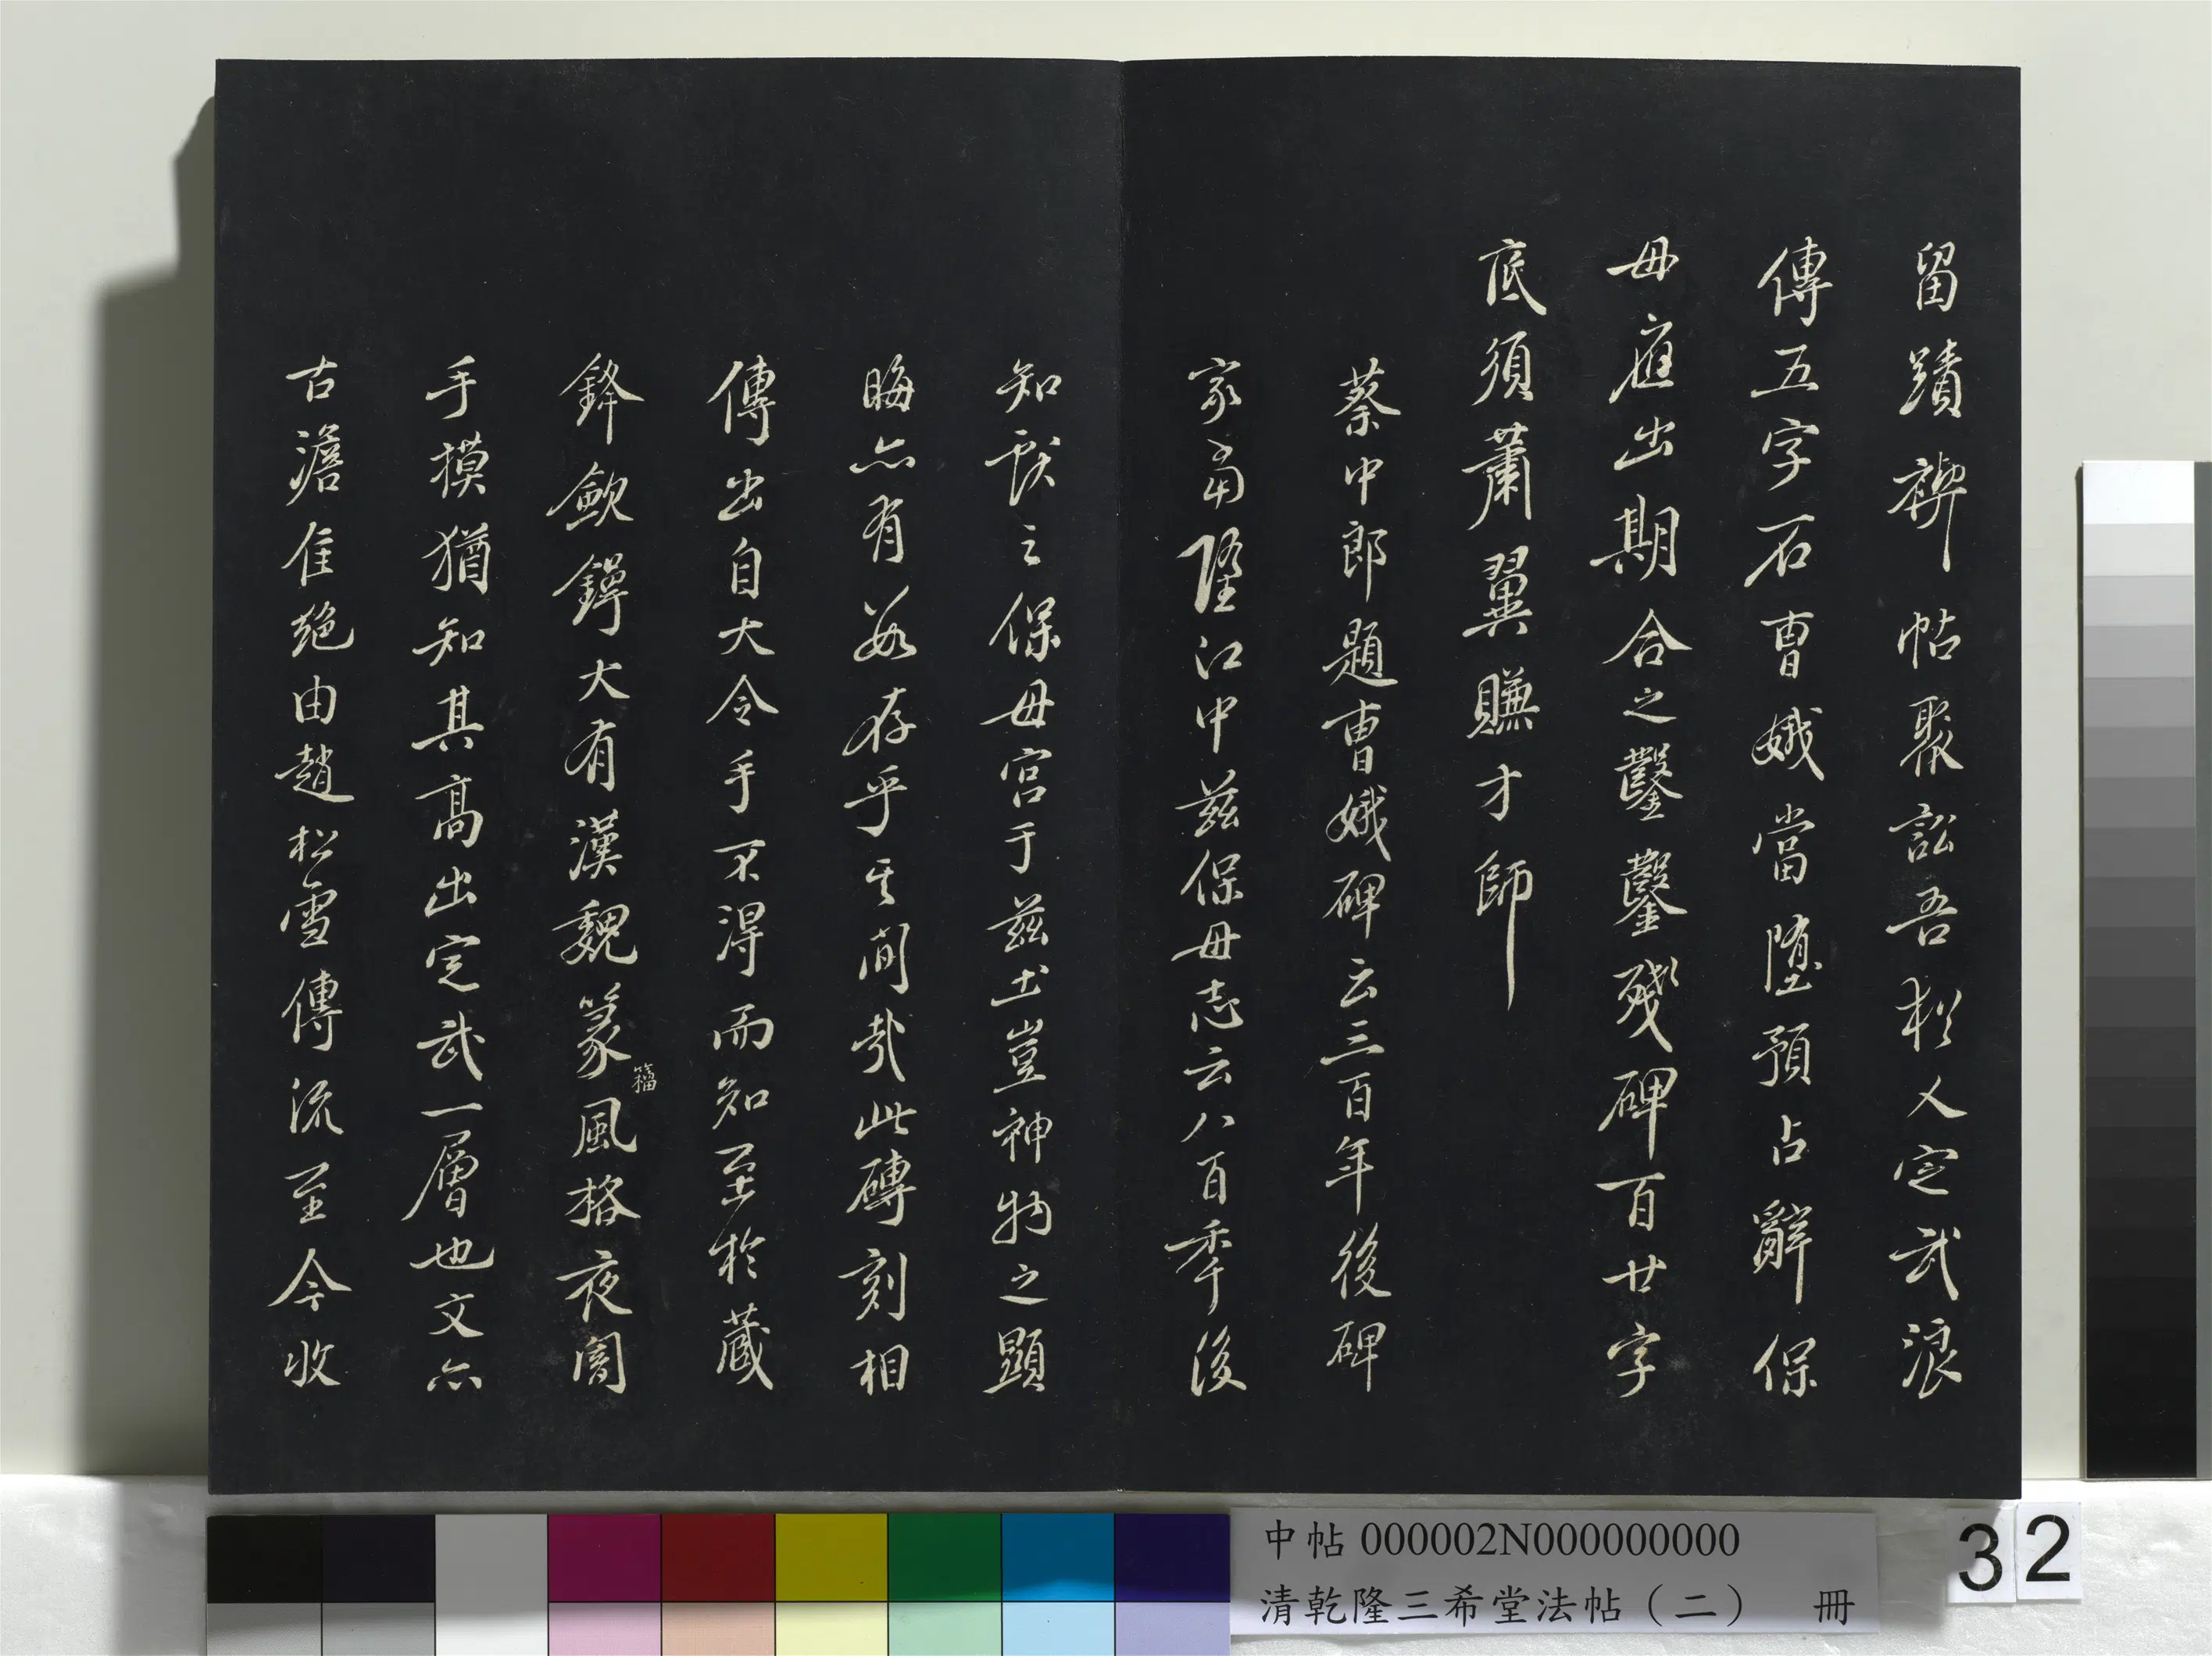 留蹟禊帖聚訟吾於人定武浪
傳五字石曹娥當堕預占辭保
母應出期合之鑿鑿殘碑百廿字
底須蕭翼賺才師
蔡中郎題曹娥碑云三百年後碑
冢當墮江中茲保母志云八百季後
知獻之保母宮于茲土豈神物之顯
晦亦有數存乎其間哉此磚刻相
傳出自大令手不得而知至於藏
鋒斂鍔大有漢魏篆籀風格夜闇
手摸猶知其高出定武一層也文亦
古澹佳絶由趙松雪傳流至今收
中帖 000002N000000000
清乾隆三希堂法帖（二） 冊
32